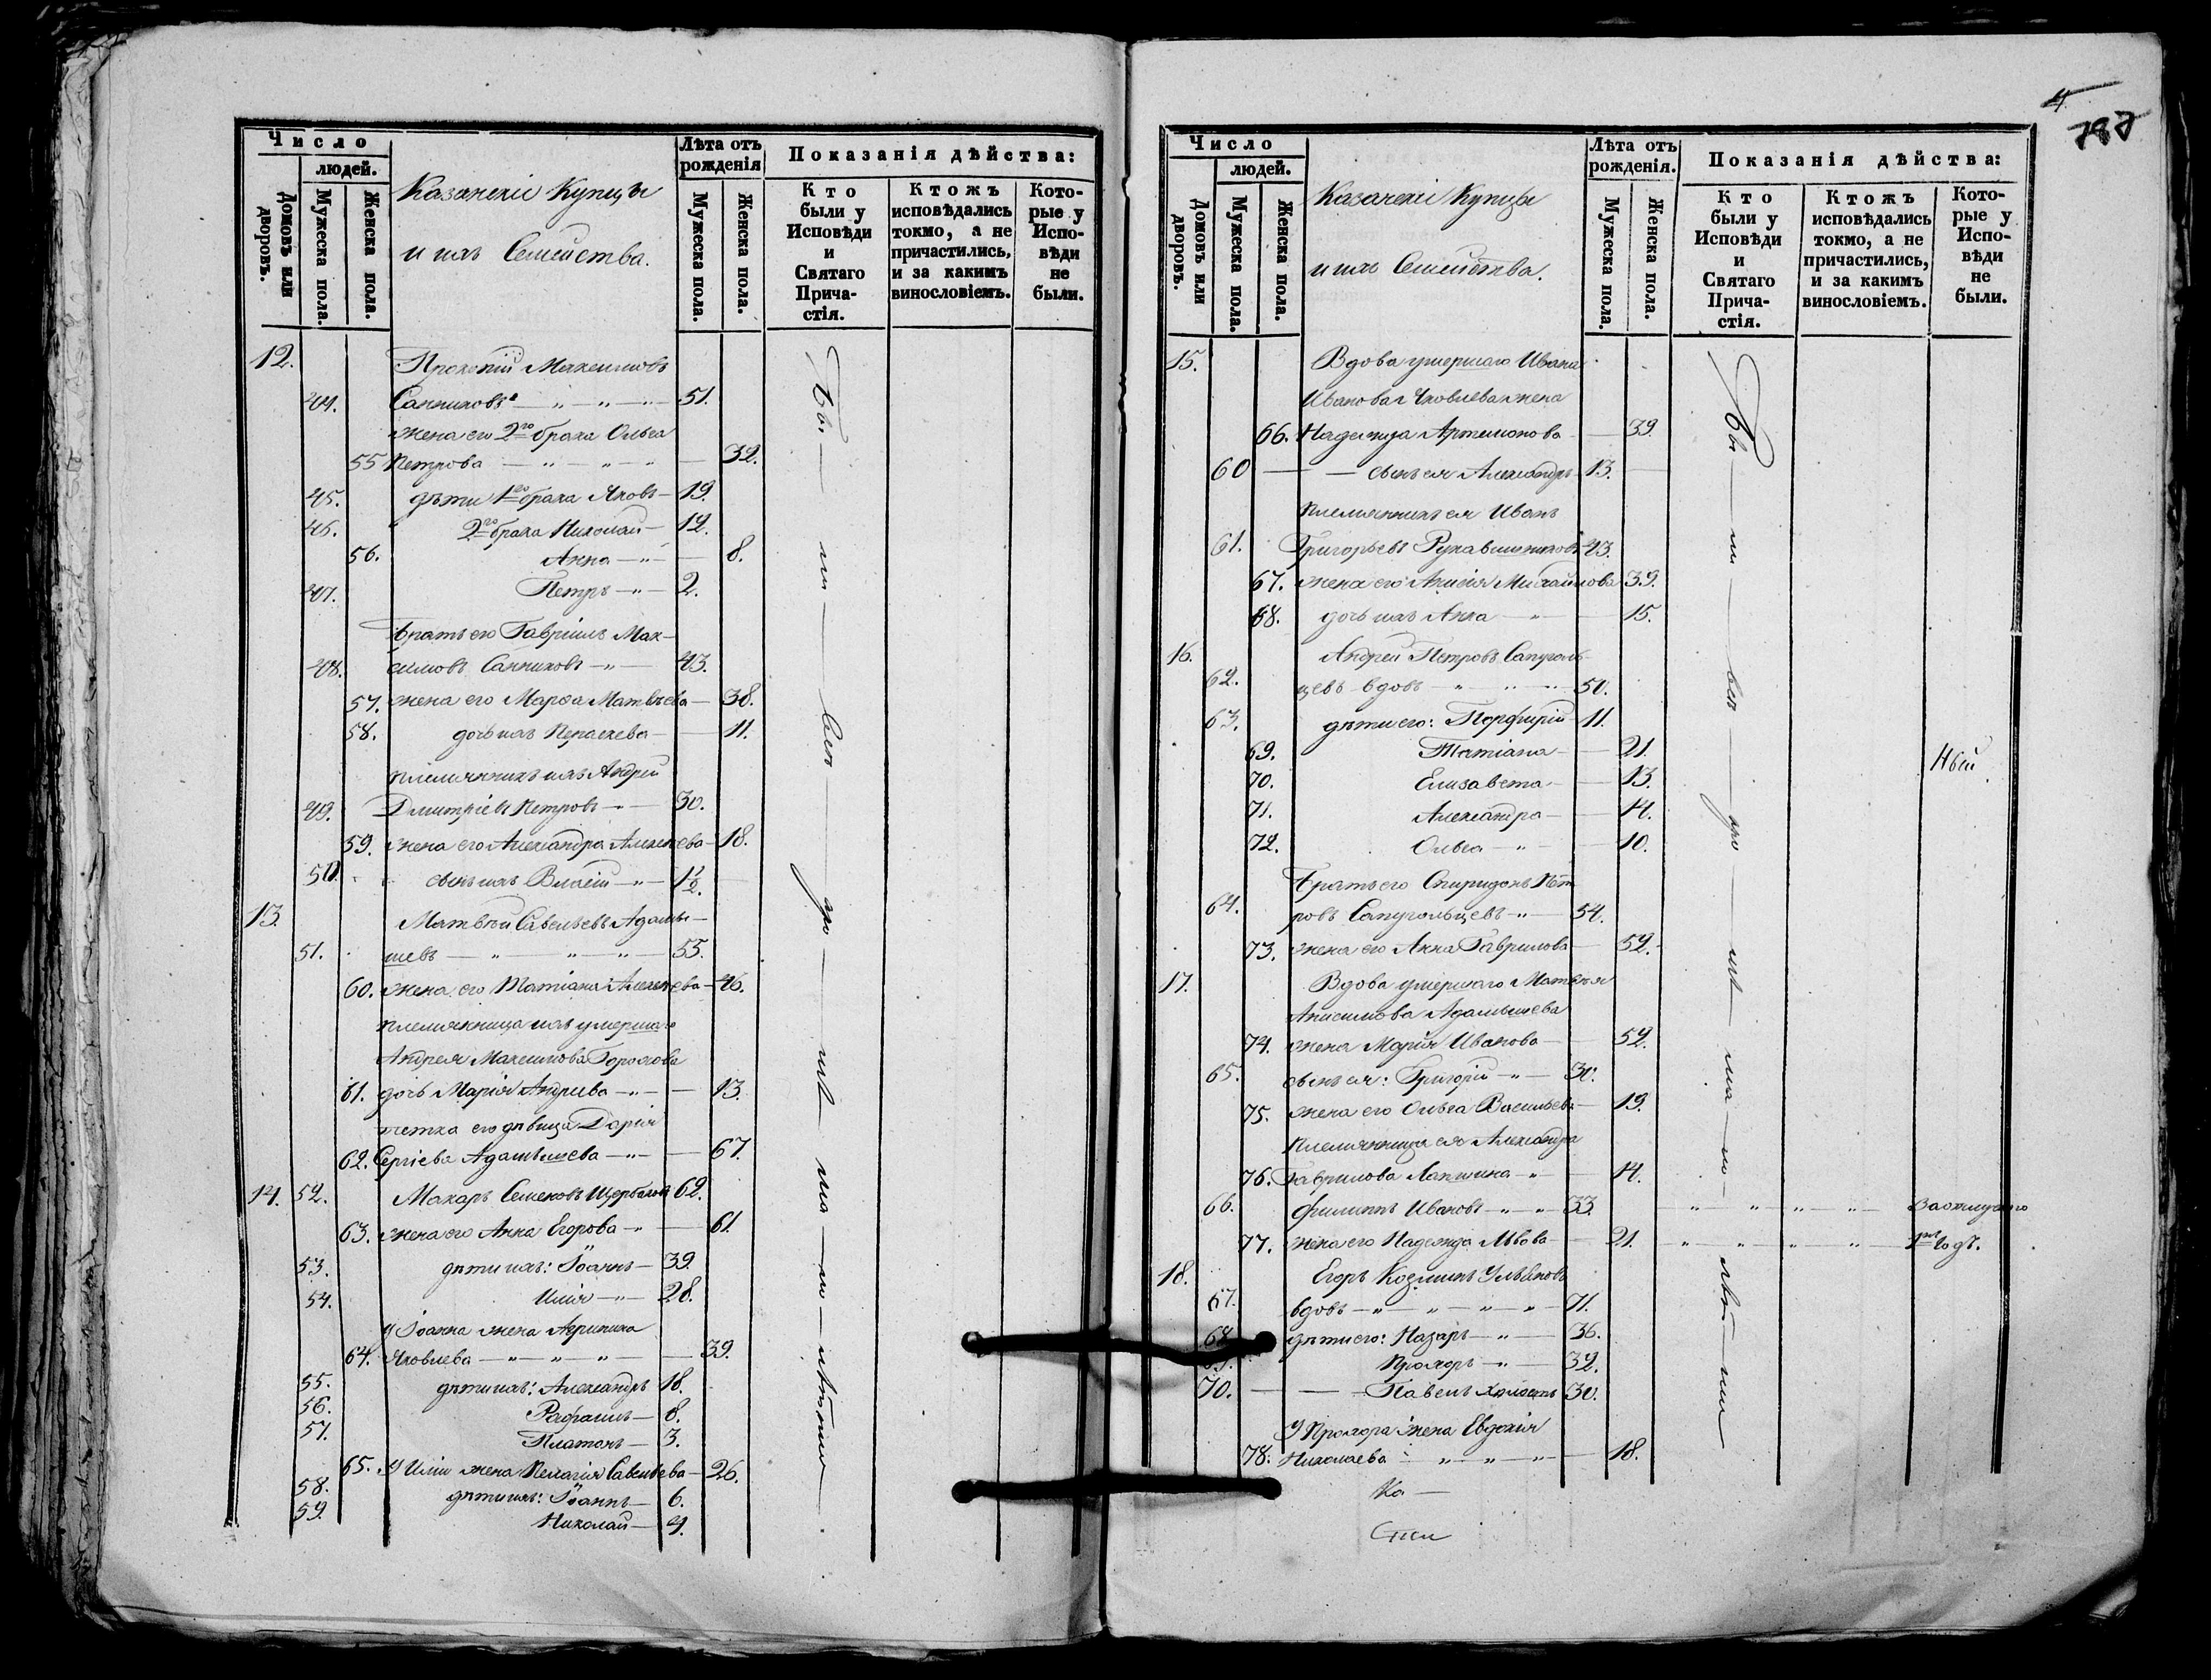 Число
людей.
Домовъ или дворовъ.
Мужеска пола.
Женска пола.
Казанскіе Купцы
и ихъ Семейства.
Лѣта отъ рожденія
Мужеска пола.
Женска пола.
Показанія дѣйства:
Кто были у Исповѣди и Святаго Прича-стія.
Ктожъ исповѣдались токмо, а не причастились, и за какимъ винословіемъ.
Кото-рые у Испо-вѣди не были.
12. Прокопій Максимовъ
44. Санниковъ — „ — „ — „ — 51.
жена его 2го брака Ольга
55 Петрова — „ — „ — „ — 32.
45. дѣти 1го брака Яковъ — 19.
46. 2го брака Николай — 12.
56. Анна — „ — 8.
47. Петръ — „ — 2.
братъ его Гавріилъ Мак-
48. симовъ Санниковъ — „ — 43.
57. жена его Марѳа Матвѣева — 38.
58. дочь ихъ Параскева — 11.
племянникъ ихъ Андрей
49. Дмитріевъ Петровъ — „ — 30.
59. жена его Александра Алексѣева — 18.
50. сынъ ихъ Власій — „ — 1½.
13. Матвѣй Савельевъ Адамы-
51. шевъ — „ — „ — „ — 55.
60. жена его Татіана Алексѣева — 46.
племянница ихъ умершаго
Андрея Максимова
61. дочь Марія Андреева — „ — 13.
тетка его дѣвица Дарія
62. Сергіева Адамышева — „ — 67.
14. 52. Макаръ Семеновъ Щербаковъ 62.
63. жена его Анна Егорова — „ — 61.
53. дѣти ихъ: Іоаннъ — 39.
54. Илія — „ — 28.
У Іоанна жена Агрипина
64. Яковлева — „ — „ — „ — 39.
55. дѣти ихъ: Александръ 18.
56. Рафаилъ — 8.
57. Платонъ — 3.
65. У Иліи жена Пелагія Савельева — 26.
58. дѣти ихъ: Іоаннъ — 6.
59. Николай — 4.
Бы — ли — вси
4
Число
людей.
Домовъ или дворовъ.
Мужеска пола.
Женска пола.
Казанскіе Купцы
и ихъ Семейства.
Лѣта отъ рожденія.
Мужеска пола.
Женска пола.
Показанія дѣйства:
Кто были у Исповѣди и Святаго Прича-стія.
Ктожъ исповѣдались токмо, а не причастились, и за какимъ винословіемъ.
Кото-рые у Испо-вѣди не были.
15. Вдова умершаго Ивана
Иванова Яковлева жена
66. Надежда Артемонова — 39.
60 — — сынъ ея Александръ 13.
племянникъ ея Иванъ
61. Григорьевъ Рукавишниковъ 43.
67. жена его Анисія Михайлова 39.
68. дочь ихъ Анна — „ — 15.
16. Андрей Петровъ Сапуголь-
62. цевъ вдовъ — „ — „ — „ — 50.
63. дѣти его: Порфирій 11.
69. Татіана — 21.
70. Елизавета — 13.
71. Александра — 14.
72. Ольга — „ — 10.
братъ его Спиридонъ Пет
64. ровъ Сапугольцевъ — „ — 54.
73. жена его Анна Гаврилова — 52.
17. Вдова умершаго Матвѣя
Анисимова Адамышева
74. жена Марія Иванова — 52.
65. сынъ ея: Григорій — „ — 30.
75. жена его Ольга Васильева — 19.
племянница ея Александра
76. Гаврилова Лапшина — „ — 14.
66. Филиппъ Ивановъ — „ — „ 33. „ „ „ „
77. жена его Надежда Львова — 21. „ „ „ „ годъ.
18. Егоръ Козминъ Ульяновъ
67. вдовъ — „ — „ — „ — „ — 71.
68. дѣти его: Назаръ — „ — 36.
69. Прохоръ — „ — 32.
70. — — Павелъ холостъ 30.
У Прохора жена Евдокія
78. Николаева — „ — „ — „ — 18.
Бы — ли — вси
Ка —